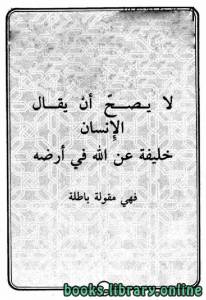 لا يصحّ أن يقال
الإنسان
خليفة عن الله في أرضه
فهي مقولة باطلة
books-library.online